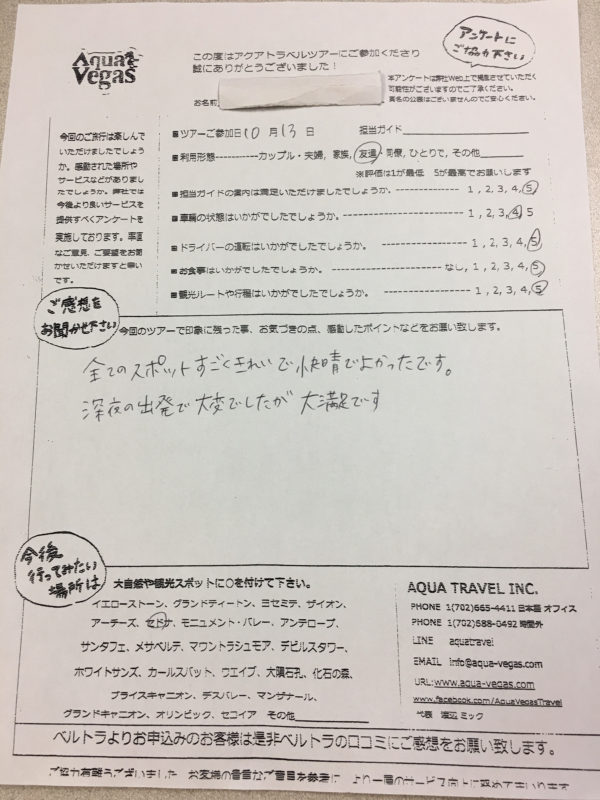 Aqua Vegas
この度はアクアトラベルツアーにご参加くださり
誠にありがとうございました！
アンケートに
ご協力下さい
本アンケートは弊社Web上で掲載させていただく
可能性がございますのでご了承ください。
実名の公表はございませんのでご安心ください。
お名前
今回のご旅行は楽しんで
いただけましたでしょう
か。感動された場所や
サービスなどがありまし
たでしょうか。弊社では
今後より良いサービスを
提供すべくアンケートを
実施しております。率直
なご意見、ご要望をお聞
かせいただけますと幸い
です。
■ツアーご参加日 10 月 13 日 担当ガイド
■利用形態-----------カップル・夫婦, 家族, 友達・同僚, ひとりで, その他
※評価は1が最低 5が最高でお願いします
■担当ガイドの案内は満足いただけましたでしょうか。---------------- 1 , 2, 3, 4, 5
■車輛の状態はいかがでしたでしょうか。---------------- 1, 2, 3, 4, 5
■ドライバーの運転はいかがでしたでしょうか。---------------- 1 , 2, 3, 4, 5
■お食事はいかがでしたでしょうか。---------------- なし, 1 , 2, 3, 4, 5
■観光ルートや行程はいかがでしたでしょうか。---------------- 1 , 2, 3, 4, 5
ご感想を
お聞かせ下さい
今回のツアーで印象に残った事、お気づきの点、感動したポイントなどをお願い致します。
全てのスポットすごくきれいで 晴でよかったです。
深夜の出発で大変でしたが 大満足です
今後
行ってみたい
場所は
大自然や観光スポットに○を付けて下さい。
イエローストーン、グランドティートン、ヨセミテ、ザイオン、
アーチーズ、セドナ、モニュメント・バレー、アンテロープ、
サンタフェ、メサベルデ、マウントラシュモア、デビルスタワー、
ホワイトサンズ、カールスバット、ウエイブ、大隕石孔、化石の森、
ブライスキャニオン、デスバレー、マンザナール、
グランドキャニオン、オリンピック、セコイア その他
AQUA TRAVEL INC.
PHONE 1(702)665-4411 日本語 オフィス
PHONE 1(702)588-0492 時間外
LINE aquatravel
EMAIL info@aqua-vegas.com
URL:www.aqua-vegas.com
www.facebook.com/AquaVegasTravel
代表 渡辺 ミック
ベルトラよりお申込みのお客様は是非ベルトラの口コミにご感想をお願い致します。